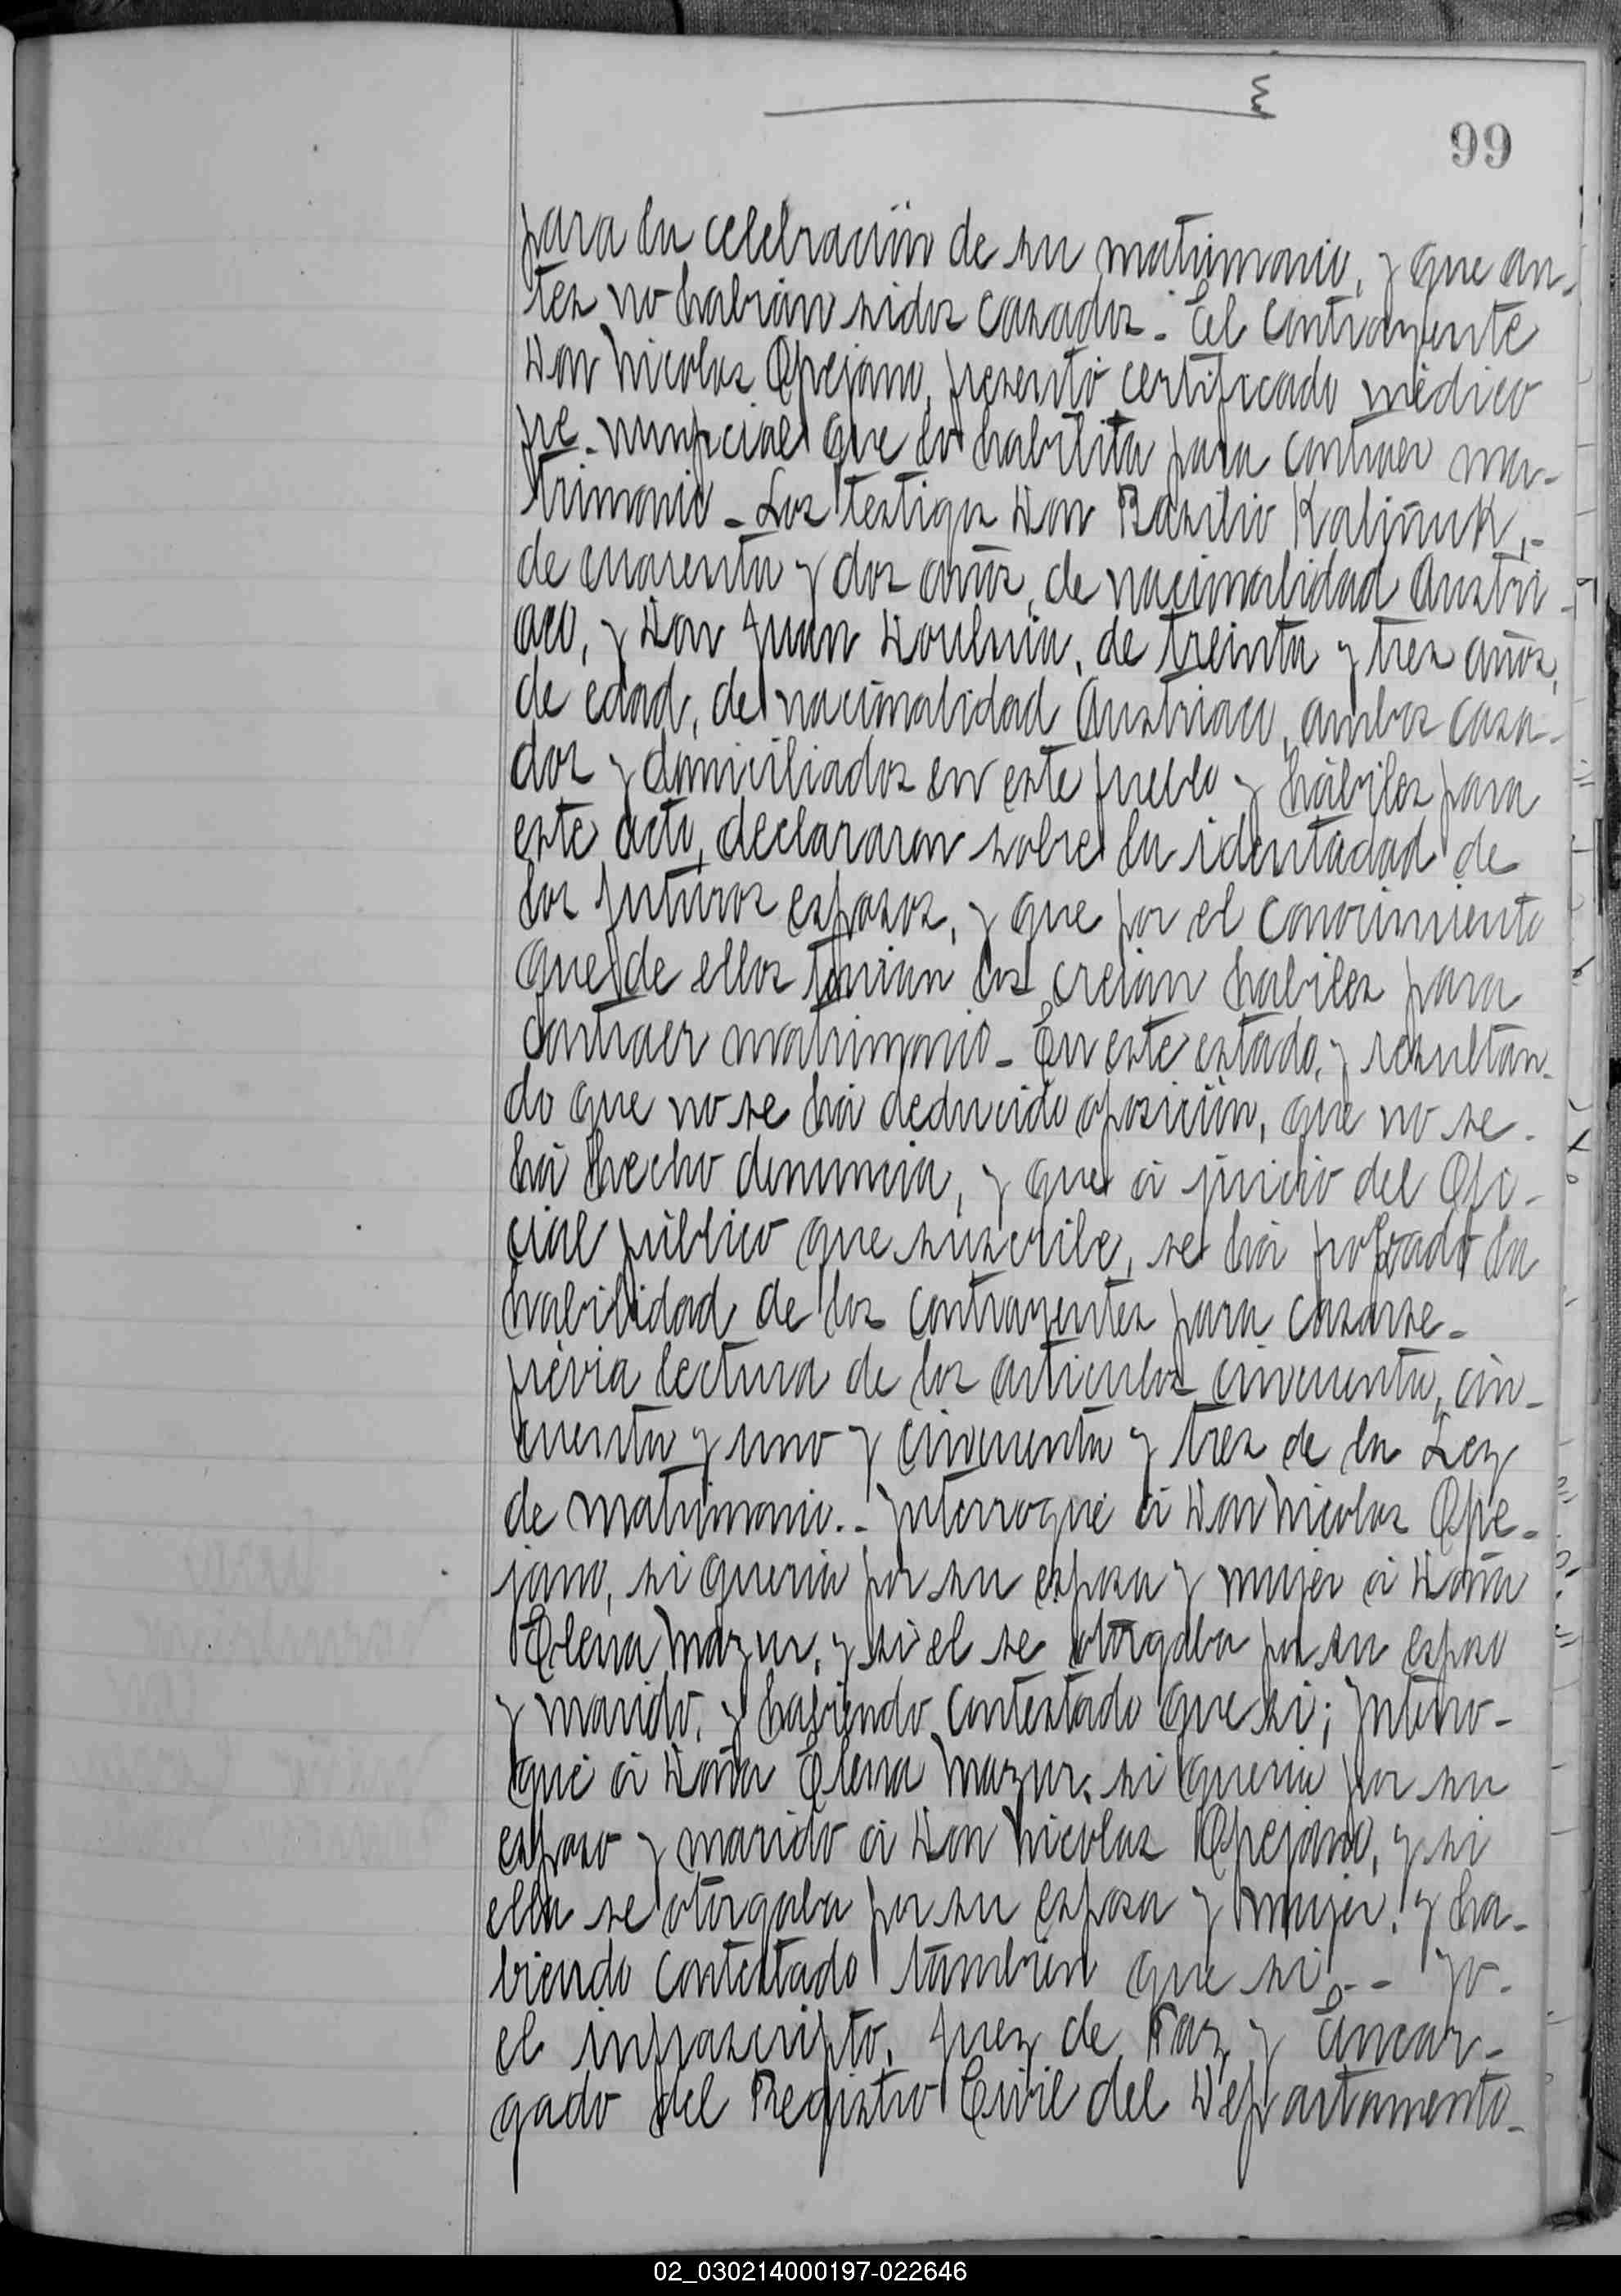 99
para la celebración de su matrimonio, y que an-
tes no habían sidos casados. El contrayente
Don Nicolas Opejano, presentó certificado médico
pre-nunpcial que lo habilita para contraer ma-
trimonio - Los testigos Don Basilio Kaliñuk,-
de cuarenta y dos años, de nacionalidad Austri-
aco, y Don Juan de treinta y tres años,
de edad, de nacionalidad Austriaco, ambos casa-
dos y domiciliados en este pueblo y hábiles para
este acto, declararon sobre la identidad de
los futuros esposos, y que por el conocimiento
que de ellos tenian los creian habiles para
contraer matrimonio - En este estado, y resultan-
do que no se há deducido oposición, que no se-
há hecho denuncia, y que á juicio del Ofi-
cial público que suscribe, se há probado la
habilidad de los contrayentes para casarse-
prévia lectura de los articulos cincuenta, cin-
cuenta y uno y cincuenta y tres de la Ley
de matrimonio.- Interrogué á Don Nicolas Ope-
jano, si queria por su esposa y mujer á Doña
Elena Mazur, y si el se otorgaba por su esposo
y marido, y habiendo contestado que si; Interro-
gué á Doña Elena Mazur, si queria por su
esposo y marido á Don Nicolas Opejano, y si
ella se otorgaba por su esposa y mujer, y ha-
biendo contestado tambien que si,-- Yo-
el infrascripto, Juez de Paz y Encar-
gado del Registro Civil del Departamento-
02_030214000197-022646